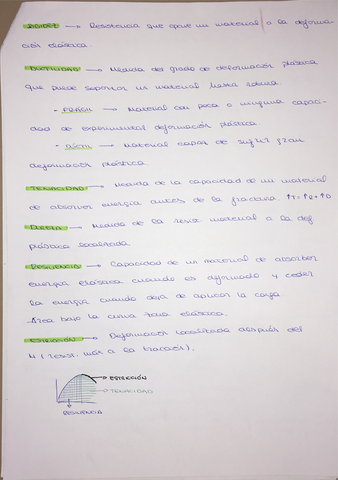 RIGIDEZ → Resistencia que opone un material a la deforma-
ción elástica.
DUCTILIDAD → Medida del grado de deformación plástica
que puede soportar un material hasta rotura.
- FRÁGIL → Material con poca o ninguna capaci-
dad de experimentar deformación plástica.
- DÚCTIL → Material capaz de sufrir gran
deformación plástica.
TENACIDAD → Medida de la capacidad de un material
de absorver energía antes de la fractura ↑T=↑R+↑D
DUREZA → Medida de la resis. material a la def
plástica localizada.
RESILIENCIA → Capacidad de un material de absorber
energía elástica cuando es deformado y ceder
la energía cuando deja de aplicar la carga.
Área bajo la curva zona elástica.
ESTRICCIÓN → Deformación localizada después del
M (resis. máx a la tracción).
ESTRICCIÓN
TENACIDAD
RESILIENCIA